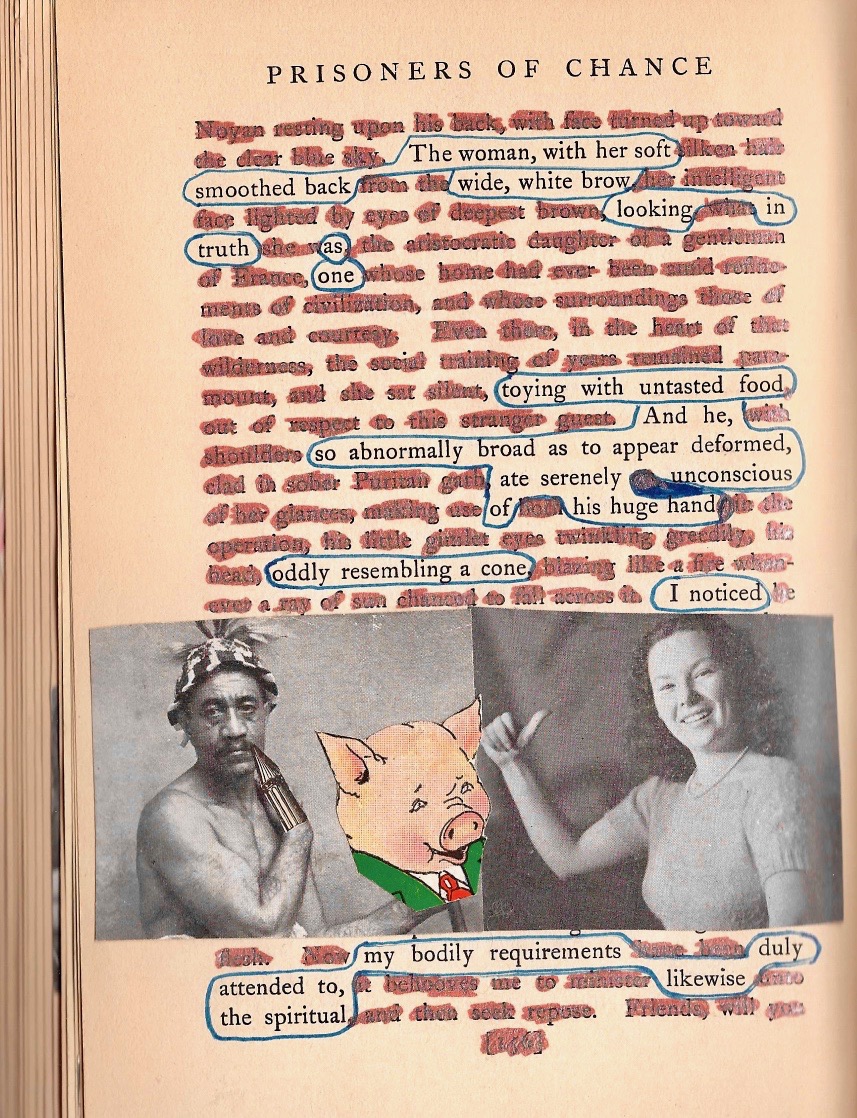 PRISONERS OF CHANCE
Noyan resting upon his back, with face turned up toward
the clear blue sky. The woman, with her soft silken hair
smoothed back from the wide, white brow, her intelligent
face lighted by eyes of deepest brown, looking what in
truth she was, the aristocratic daughter of a gentleman
of France, one whose home had ever been amid refine-
ments of civilization, and whose surroundings those of
love and courtesy. Even there, in the heart of that
wilderness, the social training of years remained para-
mount, and she sat silent, toying with untasted food,
out of respect to this stranger guest. And he, with
shoulders so abnormally broad as to appear deformed,
clad in sober Puritan garb, ate serenely unconscious
of her glances, making use of his huge hand in the
operation, his little gimlet eyes twinkling greedily, his
head, oddly resembling a cone, blazing like a fire when-
ever a ray of sun chanced to fall across it. I noticed he
flesh. Now my bodily requirements have been duly
attended to, it behooves me to minister likewise unto
the spiritual, and then seek repose. Friends, will you